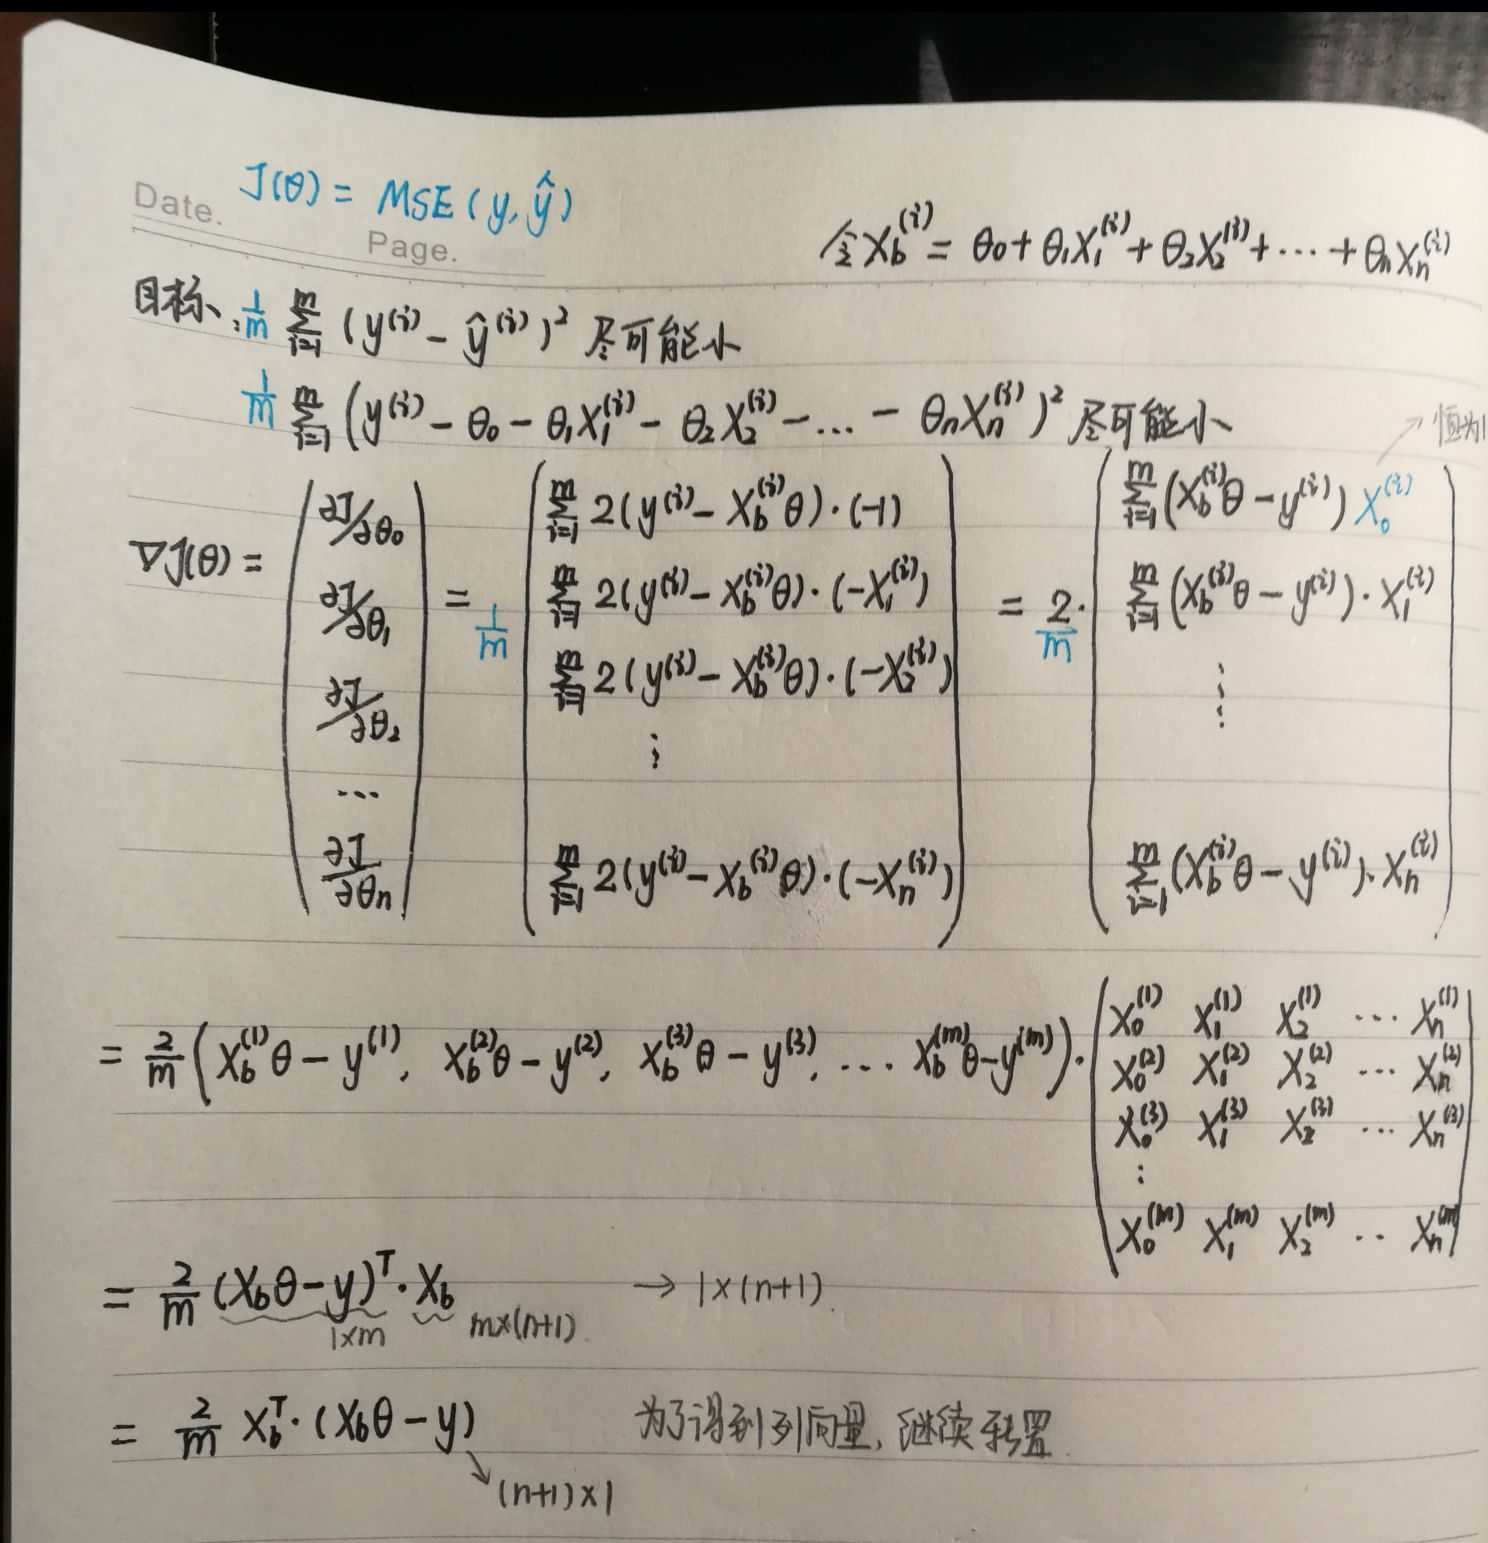 J(θ) = MSE(y, ŷ)
Date.
Page.
令 X_b^(i) = θ₀ + θ₁X₁^(i) + θ₂X₂^(i) + ⋯ + θₙXₙ^(i)
目标: 1/m Σ_{i=1}^m (y^(i) − ŷ^(i))² 尽可能小
1/m Σ_{i=1}^m (y^(i) − θ₀ − θ₁X₁^(i) − θ₂X₂^(i) − … − θₙXₙ^(i))² 尽可能小
→ 恒为1
∇J(θ) = ( ∂J/∂θ₀ ∂J/∂θ₁ ∂J/∂θ₂ … ∂J/∂θₙ )
= 1/m ( Σ_{i=1}^m 2(y^(i) − X_b^(i)θ)·(−1)
Σ_{i=1}^m 2(y^(i) − X_b^(i)θ)·(−X₁^(i))
Σ_{i=1}^m 2(y^(i) − X_b^(i)θ)·(−X₂^(i))
⋮
Σ_{i=1}^m 2(y^(i) − X_b^(i)θ)·(−Xₙ^(i)) )
= 2/m · ( Σ_{i=1}^m (X_b^(i)θ − y^(i)) X₀^(i)
Σ_{i=1}^m (X_b^(i)θ − y^(i))·X₁^(i)
⋮
Σ_{i=1}^m (X_b^(i)θ − y^(i))·Xₙ^(i) )
= 2/m (X_b^(1)θ − y^(1), X_b^(2)θ − y^(2), X_b^(3)θ − y^(3), … X_b^(m)θ − y^(m)) ·
( X₀^(1) X₁^(1) X₂^(1) ⋯ Xₙ^(1)
X₀^(2) X₁^(2) X₂^(2) ⋯ Xₙ^(2)
X₀^(3) X₁^(3) X₂^(3) ⋯ Xₙ^(3)
⋮
X₀^(m) X₁^(m) X₂^(m) ‥ Xₙ^(m) )
= 2/m (X_bθ − y)^T · X_b → 1×(n+1)
1×m m×(n+1)
= 2/m X_b^T · (X_bθ − y) 为了得到列向量, 继续转置
↘ (n+1)×1